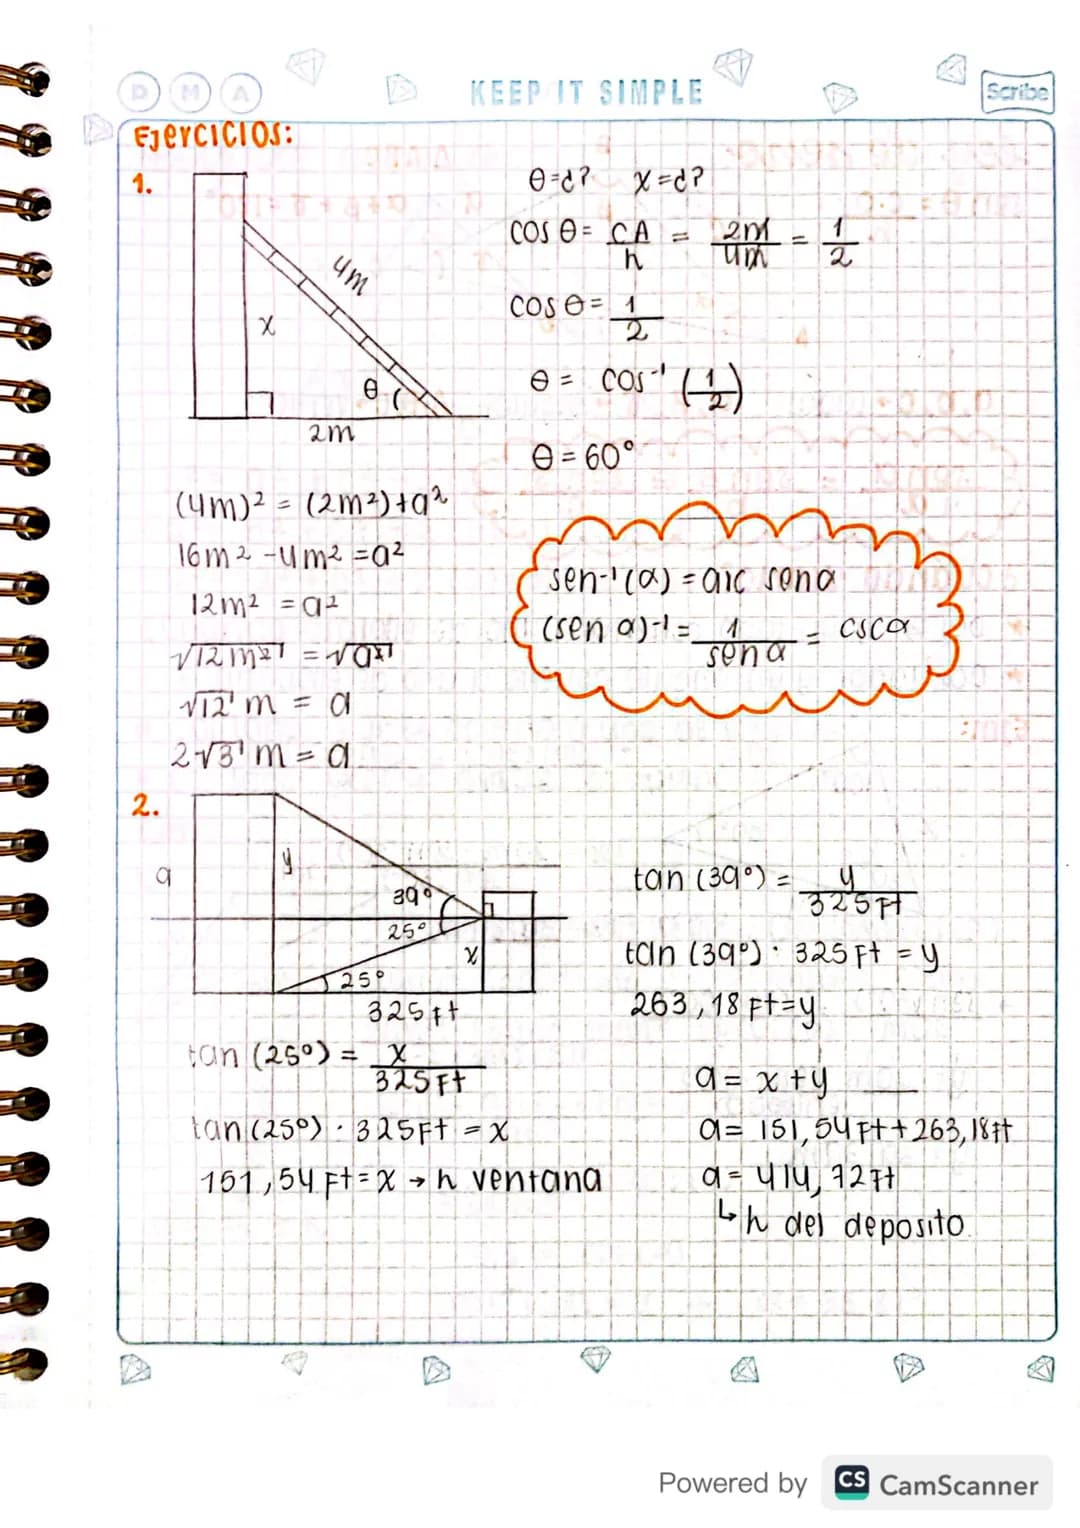 D M A
KEEP IT SIMPLE
Scribe
Ejercicios:
1.
4m
x
θ
2m
θ=¿? x=¿?
cos θ = CA/h = 2m/4m = 1/2
cos θ = 1/2
θ = cos⁻¹ (1/2)
θ = 60°
(4m)² = (2m²)+a²
16m² -4m² =a²
12m² =a²
√12m² = √a²
√12 m = a
2√3 m = a
sen⁻¹(α) = arc senα
(sen α)⁻¹ = 1/sen α = cscα
2.
a
y
39°
25°
x
25°
325ft
tan (25°) = x/325Ft
tan(25°) · 325Ft = x
151,54 Ft = x → h ventana
tan (39°) = y/325Ft
tan (39°) · 325Ft = y
263,18 Ft=y
a = x +y
a= 151,54Ft+263,18ft
a= 414,72Ft
↳h del deposito.
Powered by CS CamScanner